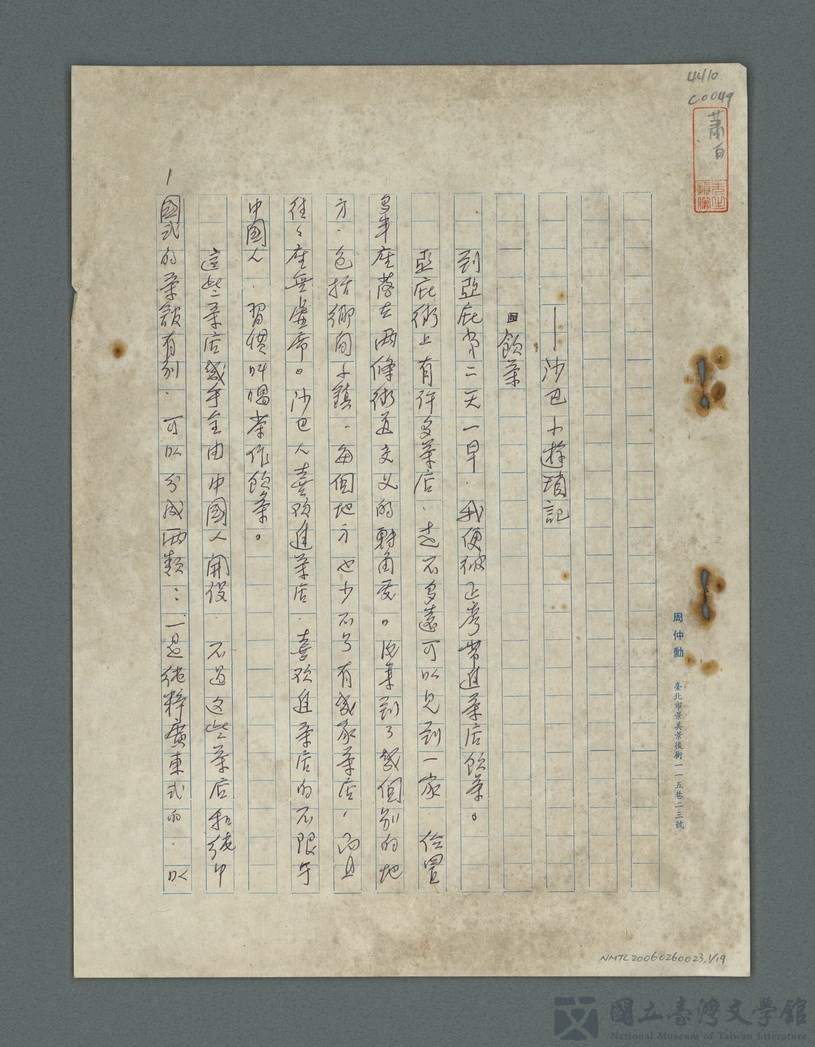 4410
C0049
蕭白
——沙巴小遊瑣記
飲茶
到亞庇第二天一早，我便被正彥帶進茶店飲茶。
亞庇街上有許多茶店，走不多遠可以見到一家，位置
多半座落在兩條街道交叉的轉角處。後來到了幾個別的地
方，包括鄉間小鎮，每個地方也少不了有幾家茶店，而且
往々座無虛席。沙巴人喜歡進茶店，喜歡進茶店的不限于
中國人，習慣叫喝茶作飲茶。
這些茶店幾乎全由中國人開設，不過這些茶店和純中
國式的茶館有別，可以分成兩類：一是純粹廣東式的，以
1
周仲勳
臺北市景美景後街一一五巷二三號
NMTL20060260023,1/19
國立臺灣文學館
National Museum of Taiwan Literature